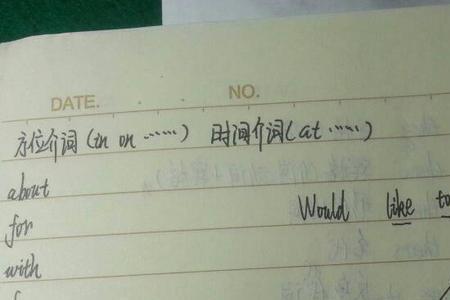 DATE. NO.
方位介词（in on ……） 时间介词（at ……）
about
Would like to
for
with